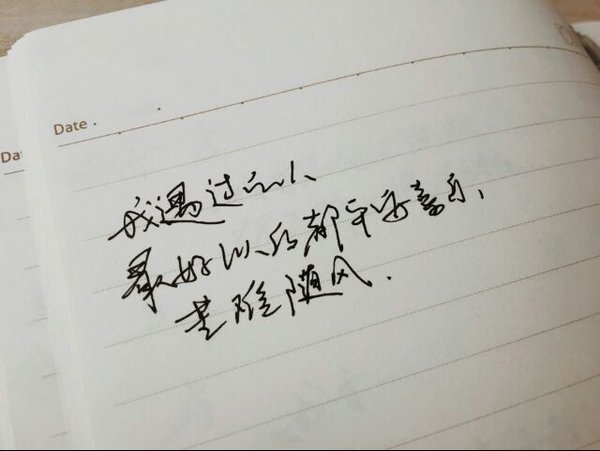 Date
Da
我遇过的人、
最好以后都平安喜乐、
苦难随风.